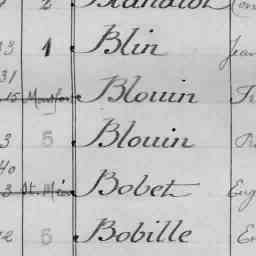 2
33 1 Blin Jean
31
15 Blouin
3 5 Blouin
40
3 St. Méen Bobet Eug
2 5 Bobille